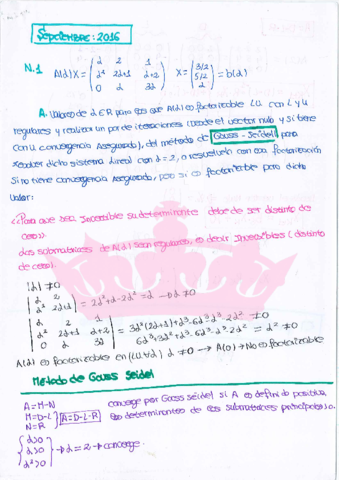 Septiembre: 2016
N.1 A(α)X = (α 2 1 / α² 2α+1 α+2 / 0 α 3α) X = (3/2 / 5/2 / 2) = b(α)
A. Valores de α ∈ R para los que A(α) es factorizable LU con L y U
regulares y realizar un par de iteraciones (desde el vector nulo y si tiene
convergencia asegurada), del método de Gauss-Seidel para
resolver dicho sistema lineal con α=2, o resuelvelo con esa factorización
si no tiene convergencia asegurada, si es factorizable para dicho
valor:
¿Para que sea inversible su determinante debe de ser distinto de
cero?
Las submatrices de A(α) sean regulares, es decir inversibles (distinto
de cero).
|α| ≠ 0
|α 2 / α² 2α+1| = 2α²+α-2α² = α → α ≠ 0
|α 2 1 / α² 2α+1 α+2 / 0 α 3α| = 3α²(2α+1)+α³-6α³-α³-2α² ≠ 0
6α³+3α²+α³-6α³-α³-2α² = α² ≠ 0
A(α) es factorizable en (LU ∀α) α ≠ 0 → A(0) → No es factorizable
Método de Gauss Seidel
A = M-N
M = D-L
N = R
A = D-L-R
converge por Gauss Seidel si A es definido positiva
los determinantes de las submatrices principales > 0.
{α>0 / α>0 / α²>0} → α=2 → converge.